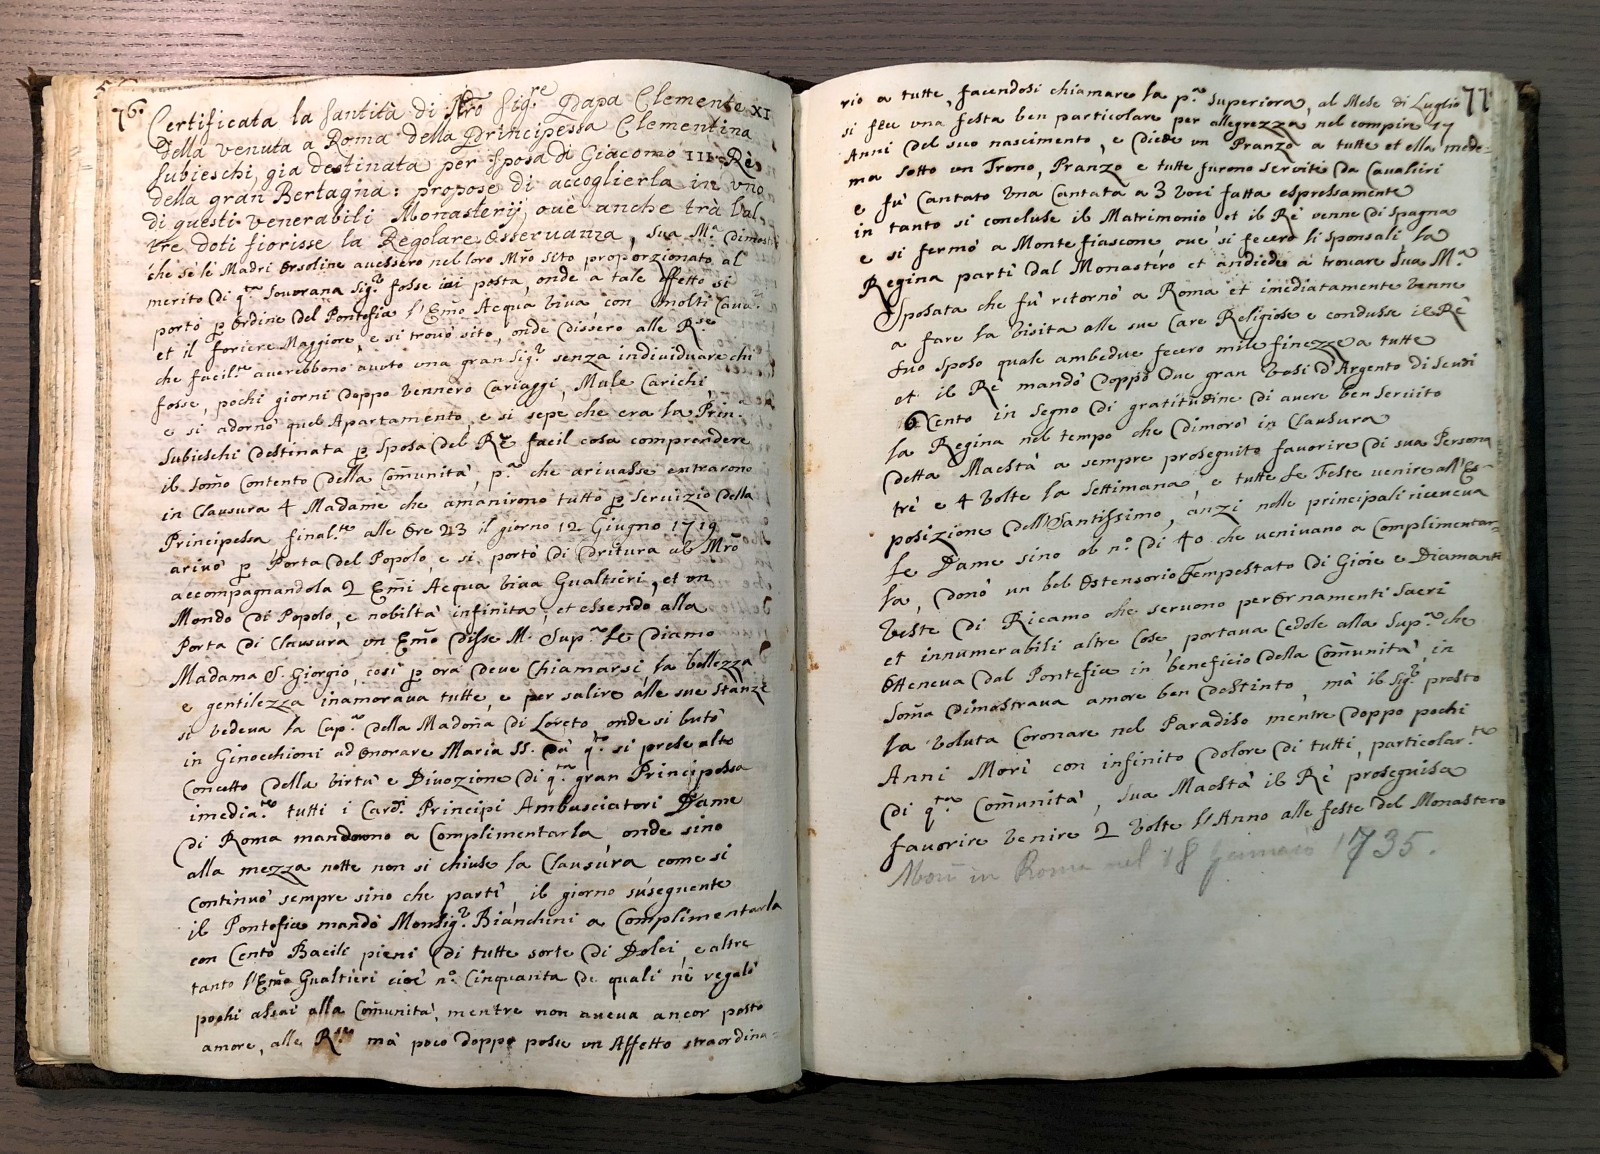 76.
Certificata la Santità di Nro Sigre Papa Clemente XI
della venuta a Roma della Principessa Clementina
Subieschi, gia destinata per Sposa di Giacomo III Rè
della gran Bertagna: propose di accoglierla in uno
di questi venerabili Monasterij, ouè anche trà l'al-
tre doti fiorisse la Regolare Osseruanza, sua Mà dimostrò
che sè le Madri Orsoline auessero nel loro Mro sito proporzionato al
merito di qta Sourana Sigra fosse ivi posta, onde a tale effetto si
portò p ordine del Pontefice l'Emo Acqua viua con molti Caua.ri
et il foriere Maggiore, e si trouò sito, onde dissero alle Rse
che facilte auerebbono auuto una gran Sigra senza indiuiduare chi
fosse, pochi giorni doppo vennero Cariaggi, Mule Carichi
e si adornò quel Apartamento, e si sepe che era la Prin.
Subieschi destinata p Sposa del Rè facil cosa comprendere
il somo contento della Comunità, pa che ariuasse entrarono
in Clausura 4 Madame che amanirono tutto p seruizio della
Principessa finalte alle Ore 23 il giorno 12 Giugno 1719
ariuò p Porta del Popolo, e si portò di dritura al Mro
accompagnandola 2 Emi Acqua viua Gualtieri, et un
Mondo di Popolo, e nobiltà infinita, et essendo alla
Porta di Clausura un Emo disse M. Supra Le diamo
Madama S. Giorgio, così p ora deue chiamarsi, la bellezza
e gentilezza inamoraua tutte, e per salire alle sue stanze
si vedeua la Capa della Madona di Loreto, onde si butò
in Ginocchioni ad onorare Maria SS. Da qto si prese alto
Concetto della virtù e Diuozione di qta gran Principessa
imediate tutti i Cardi Principi Ambasciatori Dame
di Roma mandorno a Complimentarla onde sino
alla mezza notte non si chiuse la Clausura come si
continuò sempre sino che partì, il giorno suseguente
il Pontefice mandò Monsigr Bianchini a Complimentarla
con Cento Bacili pieni di tutte sorte di Dolci, e altre
tanto l'Emo Gualtieri cioè no Cinquanta de quali nè regalò
pochi assai alla Comunità, mentre non aueua ancor posto
amore, alle Rse mà poco doppo posse un Affetto straordina-
77
rio a tutte, facendosi chiamare la pa Superiora, al Mese di Luglio
si feu una festa ben particolare per allegrezza nel compir 17
Anni del suo nascimento, e diede un Pranzo a tutte et ella mede-
ma sotto un Trono, Pranzò e tutte furono seruite da Caualieri
e fù Cantato una Cantata a 3 voci fatta espressamente
in tanto si concluse il Matrimonio et il Rè venne di Spagna
e si fermò a Monte fiascone oue si fecero li sponsali, la
Regina partì dal Monastero et andiede a trouare sua Ma
Sposata che fù ritornò a Roma et imediatamente venne
a fare la visita alle sue Care Religiose e condusse il Rè
suo sposo quale ambedue fecero mile finezze a tutte
et il Rè mandò doppo due gran vasi d'Argento di scudi
Cento in segno di gratitudine di auere ben seruito
la Regina nel tempo che dimorò in Clausura
detta Maestà a sempre proseguito fauorire di sua Persona
trè e 4 volte la settimana, e tutte le Feste venire all'Es-
posizione dell'Santissimo, anzi nelle principali riceueua
le Dame sino al no di 40 che veniuano a Complimentar-
la, donò un bel Ostensorio Tempestato di Gioie e Diamanti
veste di Ricamo che seruono per Ornamenti Sacri
et innumerabili altre cose portaua Cedole alla Supra che
otteneua dal Pontefice in beneficio della Comunità, in
soma dimostraua amore ben destinto, mà il Sigre presto
la voluta Coronare nel Paradiso mentre doppo pochi
Anni Morì con infinito dolore di tutti, particolarte
di qta Comunità, sua Maestà il Rè proseguisce
fauorire venire 2 volte l'Anno alle feste del Monastero
Morì in Roma nel 18 Gennaio 1735.